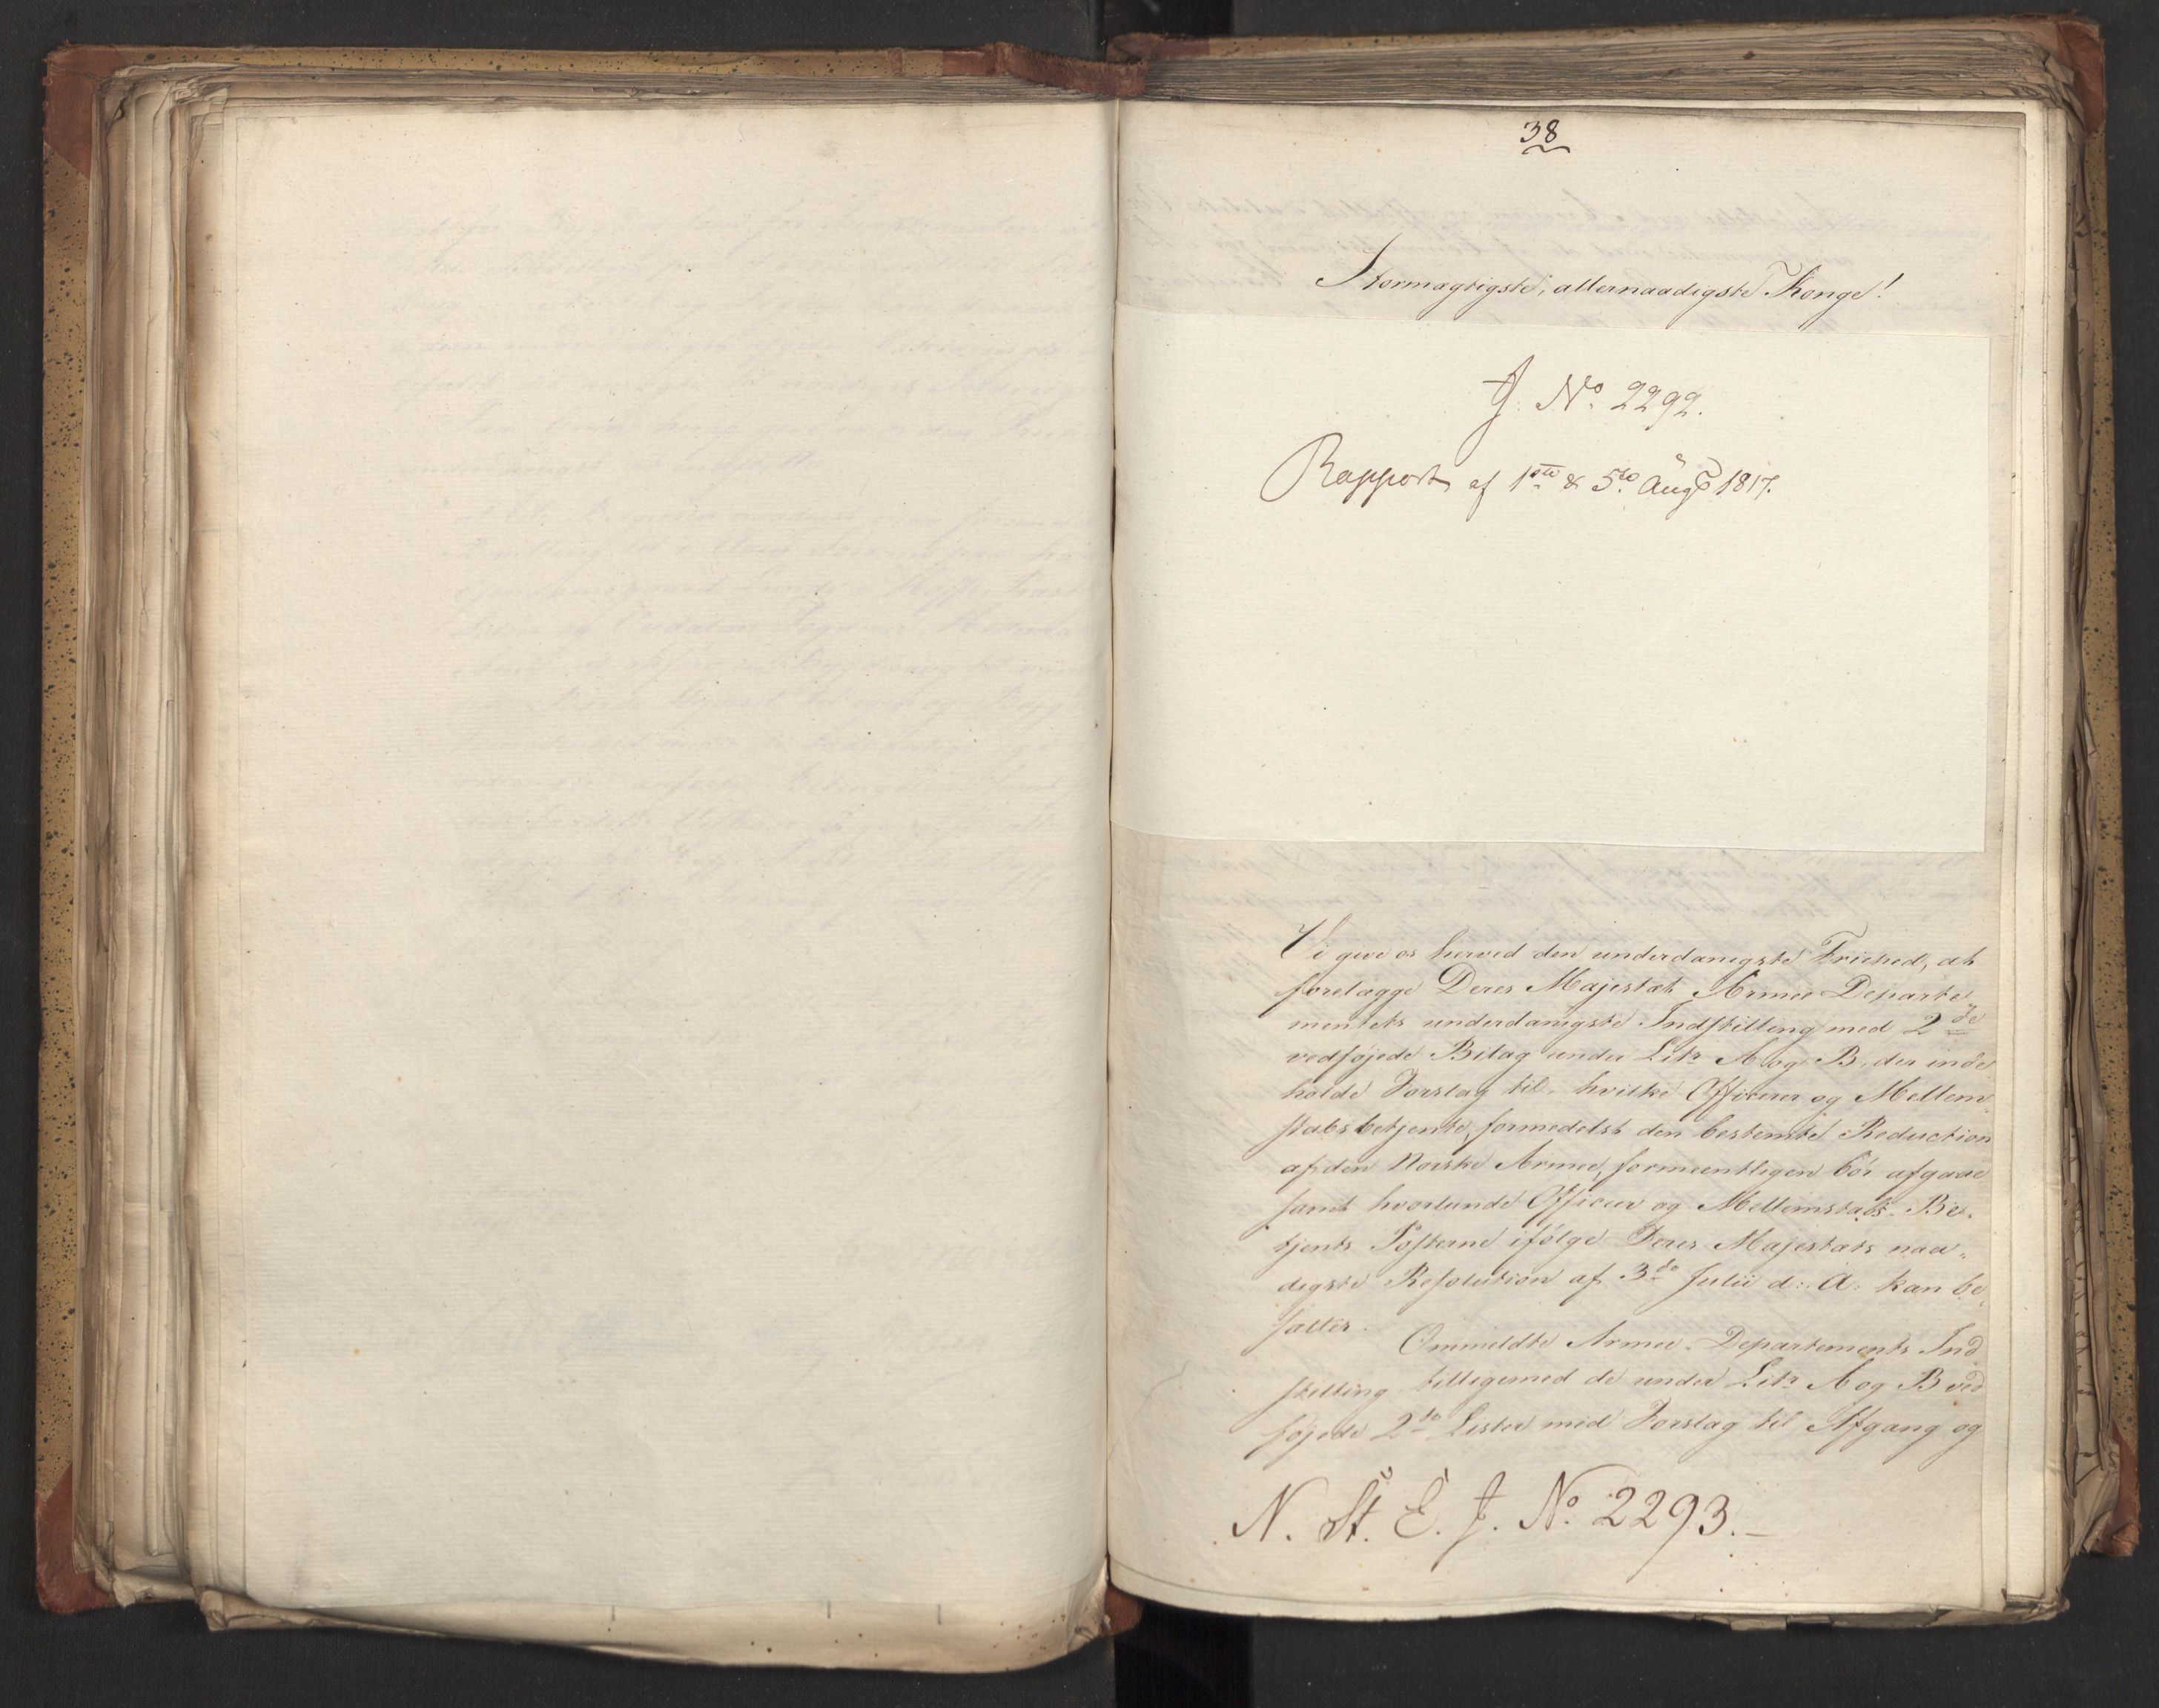 38
Stormægtigste, allernaadigste Konge!
J. No. 2292.
Rapport af 1ste & 5te Augt 1817.
Vi give os herved den underdanigste Friehed, at
forelægge Deres Majestæt Armee Departe
mentets underdanigste Indstilling med 2de
vedføjede Bilag under Litr A og B, der inde
holde Forslag til hvilke Officerer og Mellem
stabsbetjente, formedelst den bestemte Reduction
af den Norske Armee, formeentligen bør afgaae
samt hvorlunde Officier og Mellemstabs-Be-
tjents Posterne ifølge Deres Majestæts naa-
digste Resolution af 3die Julii d: A: kan be
sættes.
Ommeldte Armee-Departements Ind
stilling tilligemed de under Litr A og B ved
føjede 2de Lister med Forslag til Afgang og
N. St. E. J. No. 2293.-